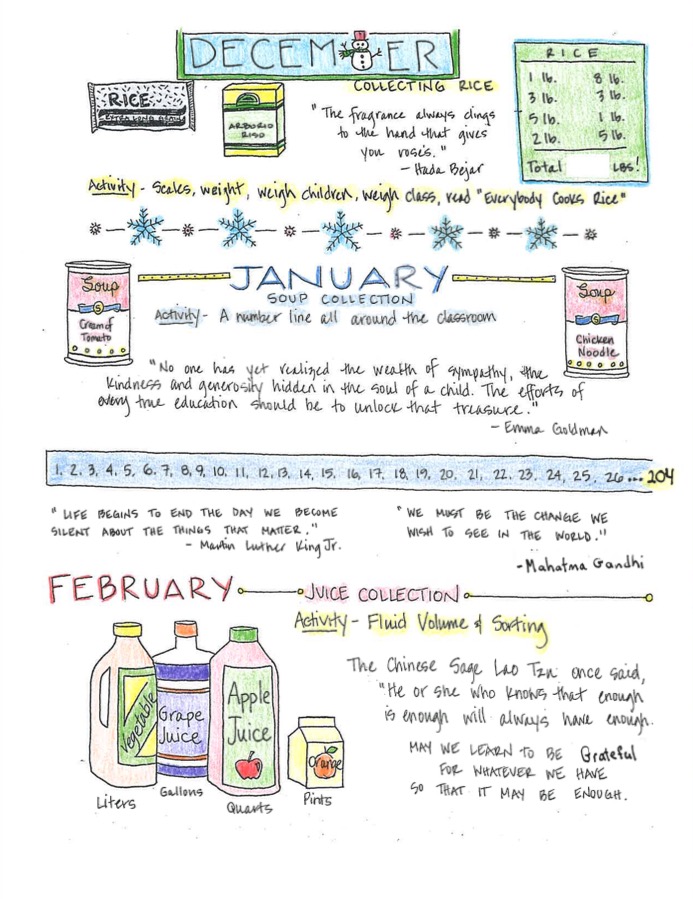 DECEMBER
COLLECTING RICE
RICE
EXTRA LONG GRAIN
ARBORIO
RISO
"The fragrance always clings
to the hand that gives
you roses."
- Hada Bejar
RICE
1 lb. 8 lb.
3 lb. 3 lb.
5 lb. 1 lb.
2 lb. 5 lb.
Total LBS!
Activity - Scales, weight, weigh children, weigh class, read "Everybody Cooks Rice"
JANUARY
SOUP COLLECTION
Soup
5
Cream of
Tomato
Soup
5
Chicken
Noodle
Activity - A number line all around the classroom
"No one has yet realized the wealth of sympathy, the
kindness and generosity hidden in the soul of a child. The efforts of
every true education should be to unlock that treasure."
- Emma Goldman
1, 2, 3, 4, 5, 6, 7, 8, 9, 10, 11, 12, 13, 14, 15, 16, 17, 18, 19, 20, 21, 22, 23, 24, 25, 26 ... 204
"LIFE BEGINS TO END THE DAY WE BECOME
SILENT ABOUT THE THINGS THAT MATTER."
- Martin Luther King Jr.
"WE MUST BE THE CHANGE WE
WISH TO SEE IN THE WORLD."
- Mahatma Gandhi
FEBRUARY
JUICE COLLECTION
Activity - Fluid Volume & Sorting
Vegetable
Grape
Juice
Apple
Juice
Orange
Liters
Gallons
Quarts
Pints
The Chinese Sage Lao Tzu once said,
"He or she who knows that enough
is enough will always have enough.
MAY WE LEARN TO BE Grateful
FOR WHATEVER WE HAVE
SO THAT IT MAY BE ENOUGH.